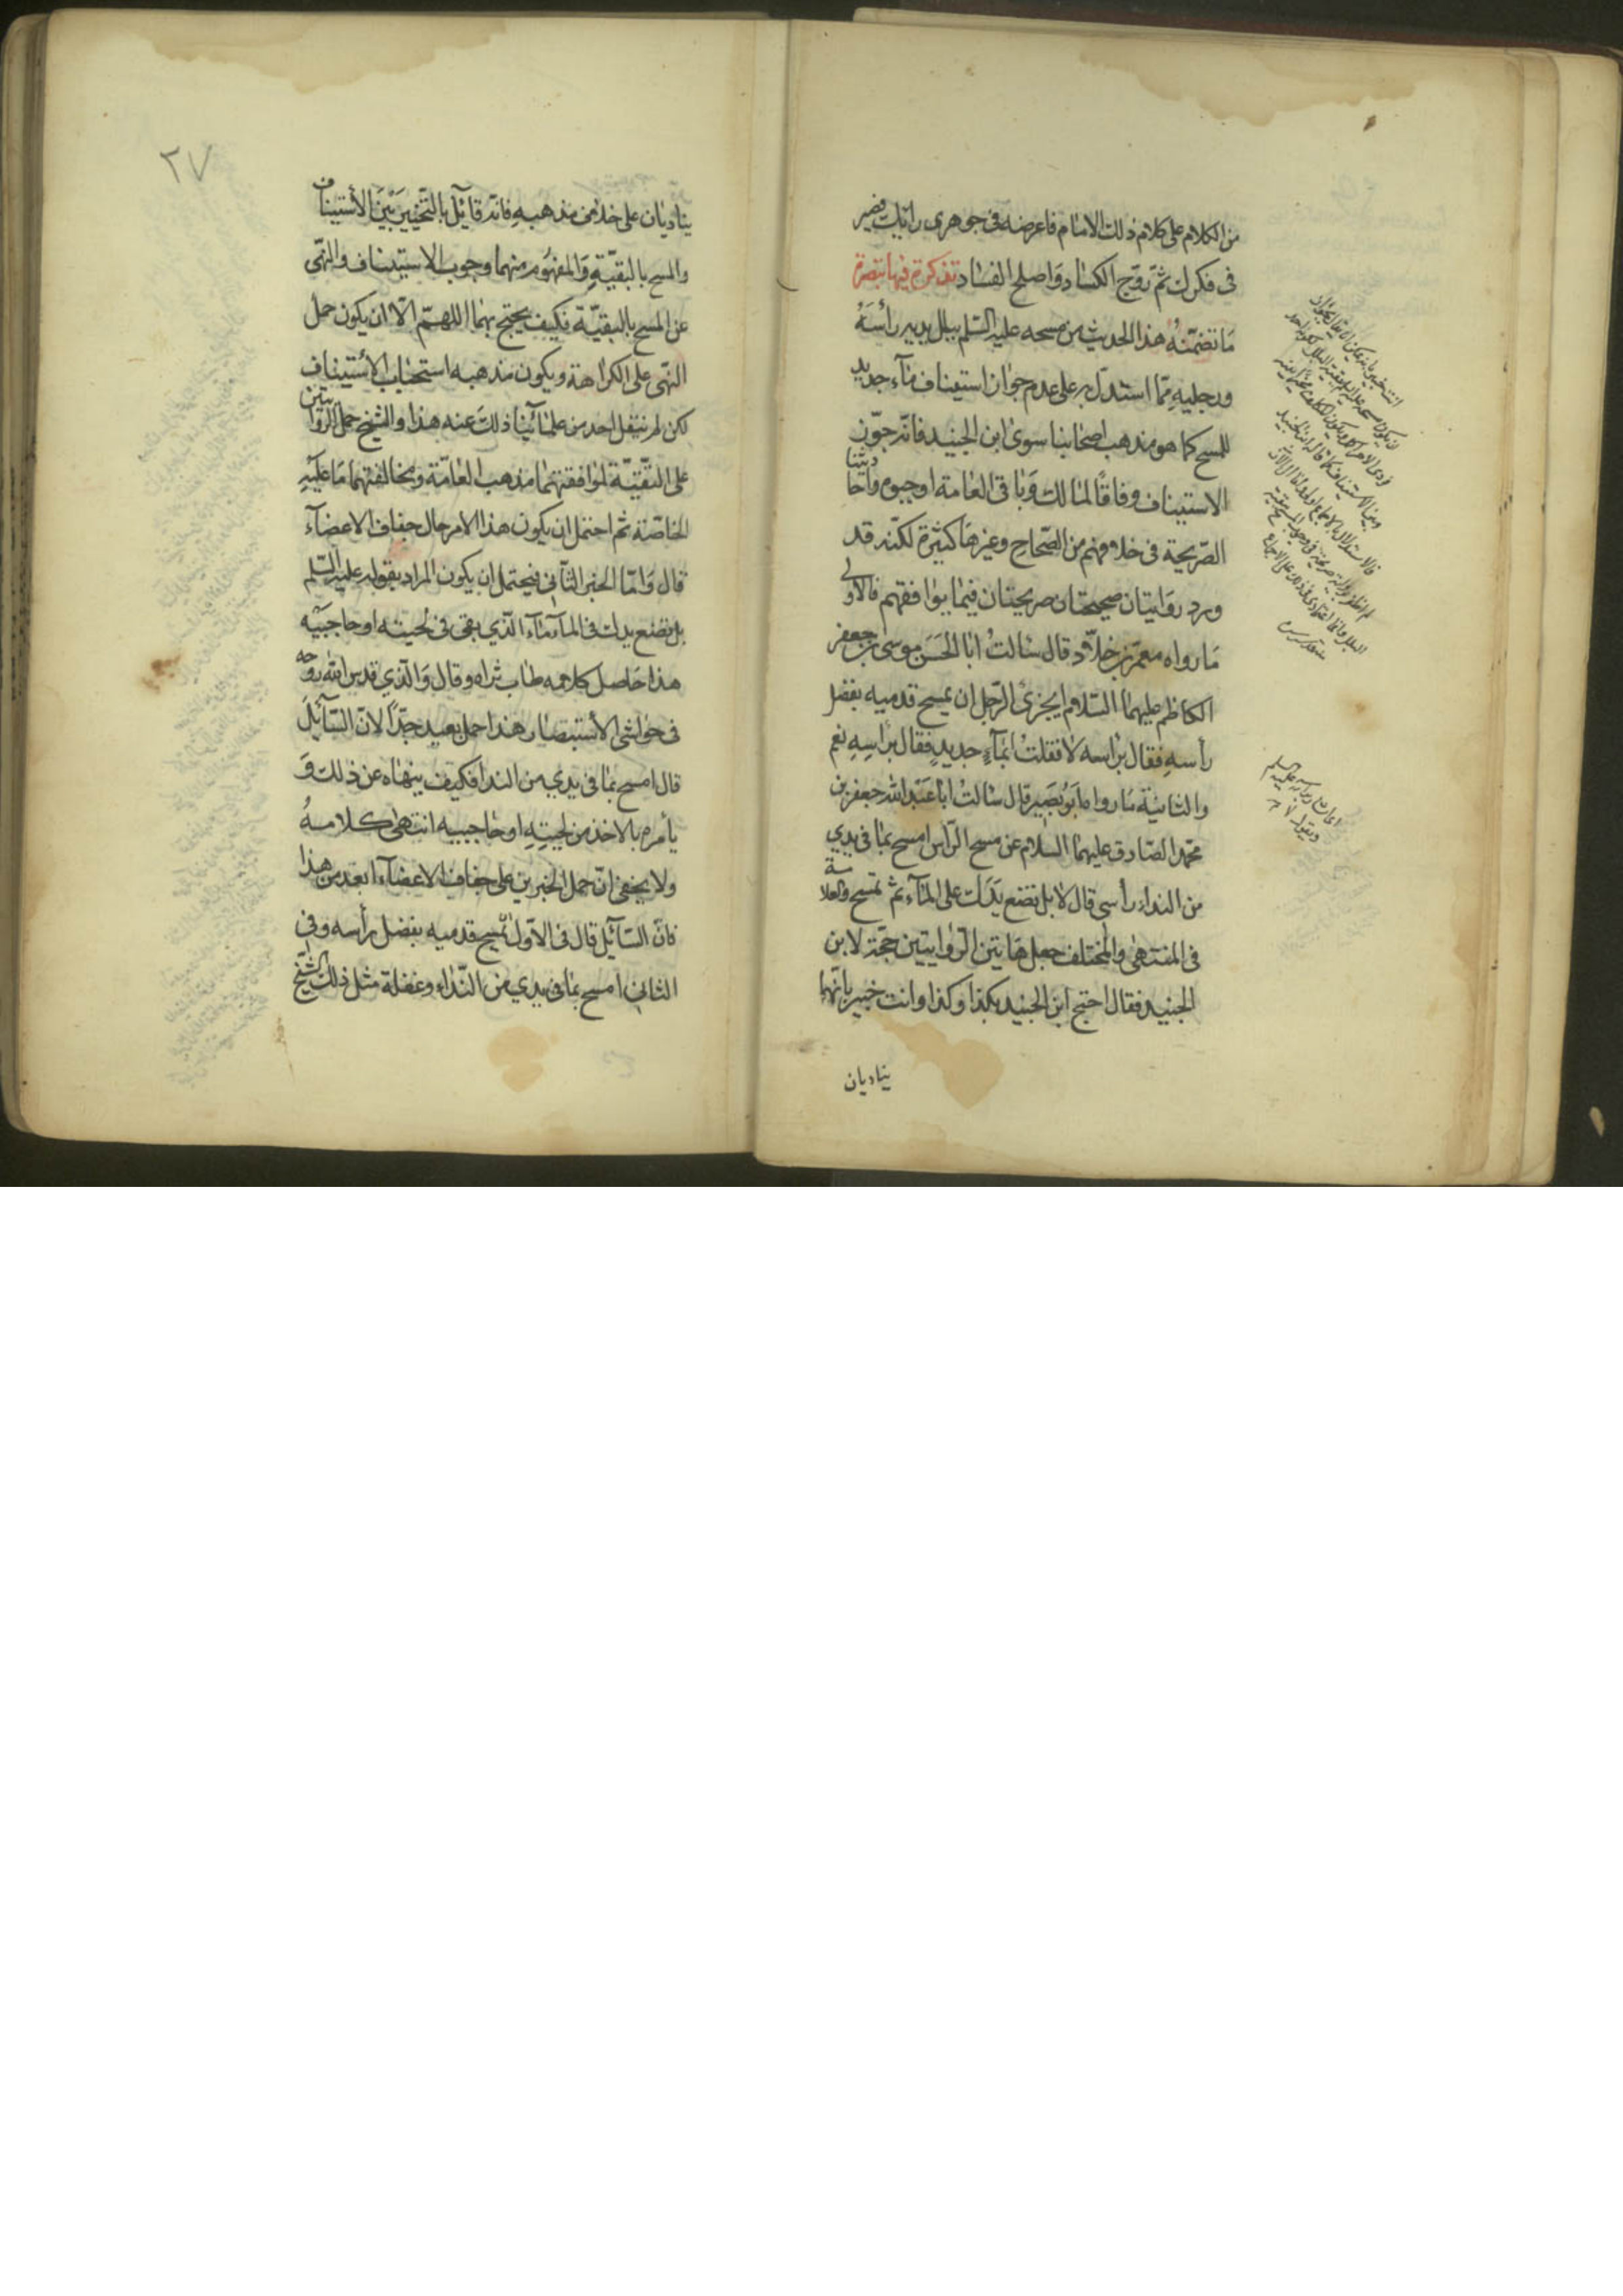 من الكلام على كلام ذلك الامام فاعرضه فى جوهرى رائك بصير
فى فكرك ثم روّج الكساد واصلح الفساد تذكرة فيها تبصرة
ما تضمّنه هذا الحديث من مسحه عليه السّلم ببلل يديه رأسَهُ
ورجليهِ ممّا استدلّ به على عدم جواز استيناف مآء جديد
للمسح كما هو مذهب اصحابنا سوى ابن الجنيد فانّه جوّز
الاستيناف وفاقًا لمالك وباقى العامة اوجبوه واحاديثنا
الصّريحة فى خلافهم من الصّحاح وغيرها كثيرة لكنّه قد
ورد روايتان صحيحتان صريحتان فيما يوافقهم فالاولى
ما رواه معمّر بن خلّاد قال سالتُ ابا الحَسَن موسى بن جعفر
الكاظم عليهما السّلام ايجزئ الرّجل ان يمسح قدميه بفضل
رأسهِ فقال برأسه لا فقلتُ ابمآءٍ جديدٍ فقال برَاسِهِ نعم
والثانية ما رواه ابَوُ بَصَير قال سالتُ ابا عَبْد الله جعفر بن
محمّد الصّادق عليهما السلام عن مسح الرّاس امسح بما فى يدي
من النداء رأسى قال لا بل تضع يَدَكَ على المآء ثمّ تمسح والعلامة
فى المنتهى والمختلف جعل هاتين الرّوايتين حجّة لابن
الجنيد فقال احتج ابن الجنيد بكذا وكذا وانت خبير بانّهما
يناديان
٢٧
يناديان على خلاف مذهبه فانّه قائل بالتّخيير بَيْنَ الاستيناف
والمسح بالبقيّةِ والمفهُوم منهما وجوب الاستيناف والنّهى
عن المسح بالبقيّة فكيف يحتج بهما اللهمّ الّا ان يكون حمل
النّهى على الكراهة ويكون مذهبه استحباب الاستيناف
لكن لم ينقل احد من علمائنا ذلك عنه هذا والشيخ حمل الروايتين
على التّقيّة لموافقتهما مذهب العامّة ومخالفتهما ما عليه
الخاصّة ثم احتمل ان يكون هذا الامر حال جفاف الاعضآء
قال وَامّا الخبر الثّانى فيحتمل ان يكون المراد بقوله عليه السّلم
بل تضع يدك فى المآء مآء الّذي بقى فى لحيته او حاجبَيْه
هذا حاصل كلامه طاب ثراه وقال والدي قدس الله روحه
فى حواشى الاستبصار هذا حمل بعيد جدًّا لانّ السّآئِلَ
قال امسح بما فى يدي من الندا فكيف ينهاه عن ذلك وَ
يأمره بالاخذ من لحيتِهِ او حاجبيه انتهى كلامهُ
ولا يخفى انّ حمل الخبرين على جفاف الاعضآء ابعد من هذا
فانّ السّآئِل قال فى الاوّل يمسح قدميه بفضل رأسه وفى
الثانى امسح بما فى يدي من النّداء وغفلة مثل ذلك الشّيخ